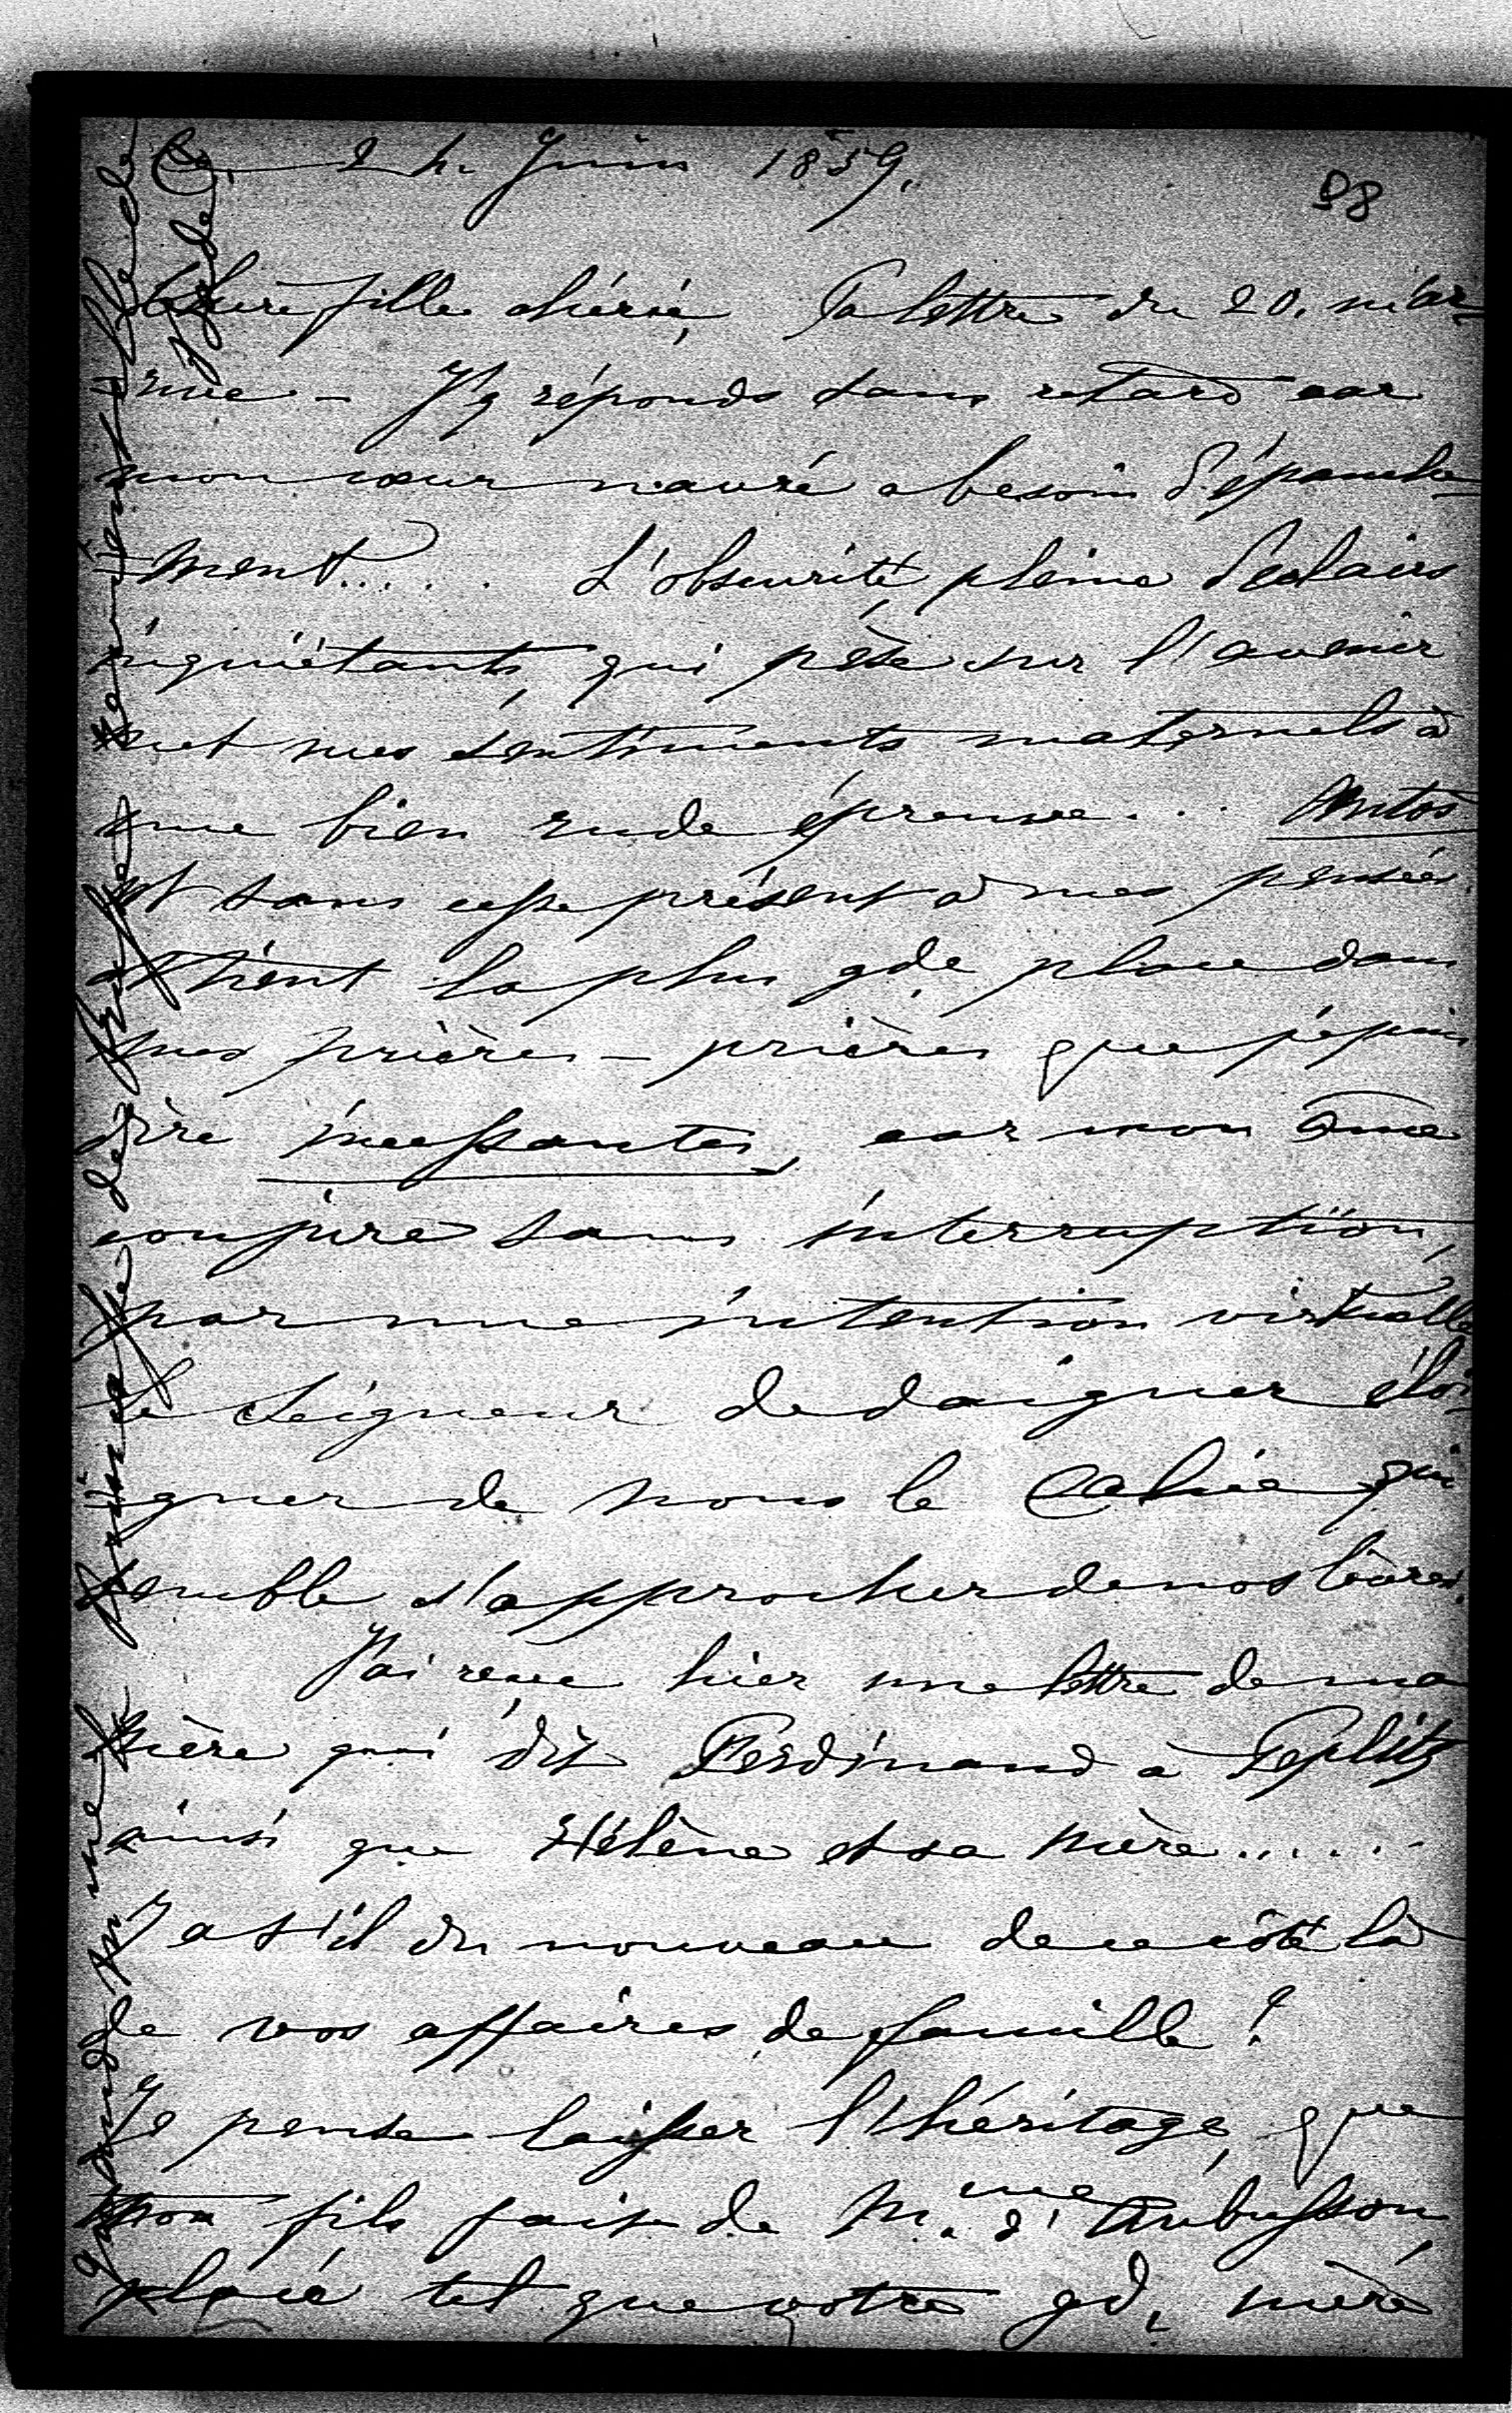 24 Juin 1859.
98
Chère fille chérie, Ta lettre du 20. m'ar-
rive - J'y réponds sans retard car
mon cœur navré a besoin d'épanche-
ment..... L'obscurité, pleine d'éclairs
inquiétants, qui pèse sur l'avenir
met mes sentiments maternels à
une bien rude épreuve... Antos
est sans cesse présent à mes pensées
et tient la plus gde place dans
mes prières - prières que je puis
dire incessantes, car mon âme
conjure sans interruption,
par une intention virtuelle
le Seigneur de daigner éloi-
gner de nous le Calice qui
semble s'approcher de nos lèvres.
J'ai reçu hier une lettre de ma
qui dit Ferdinand à Teplitz
ainsi que Hélène et sa mère.....
Y a t'il du nouveau de ce côté là
de vos affaires de famille?
Je pense laisser l'héritage, que
mon fils fait de Mme d'Aubusson,
placé tel que votre gd. mère
quand on me
Princesse de Prusse
revient elle de